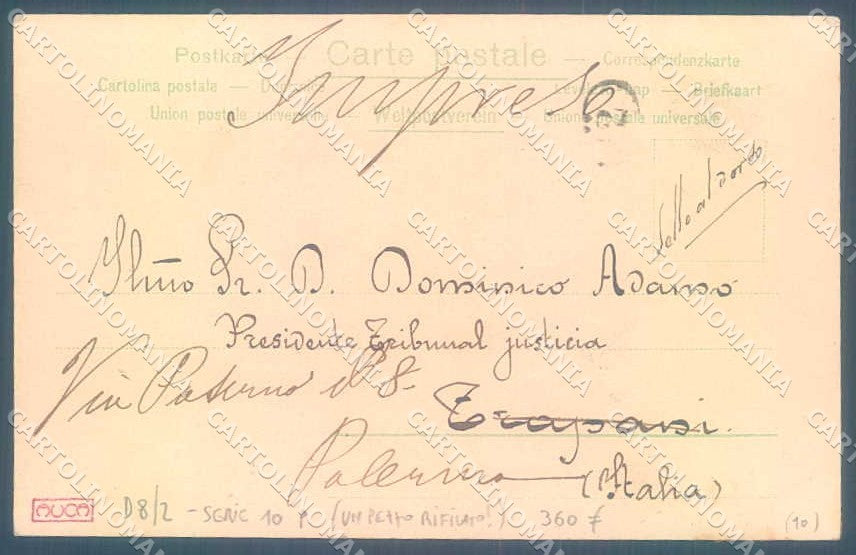 Postkarte — Carte postale — Correspondenzkarte
Cartolina postale — — Briefkaart
Union postale universelle — Weltpostverein — Union postale universale
Impreso
Sello al dorso
Ilmo Sr. D. Dominico Adamo
Presidente Tribunal justicia
Via Paterno N 8-
Trapani.
Palermo
(Italia)
AUCA D8/2 - SERIE 10 P (UN PETTO RIFILATO!) 360 £ (10)
CARTOLINOMANIA